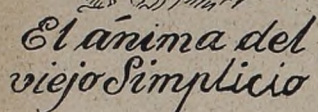 El ánima del
viejo Simplicio